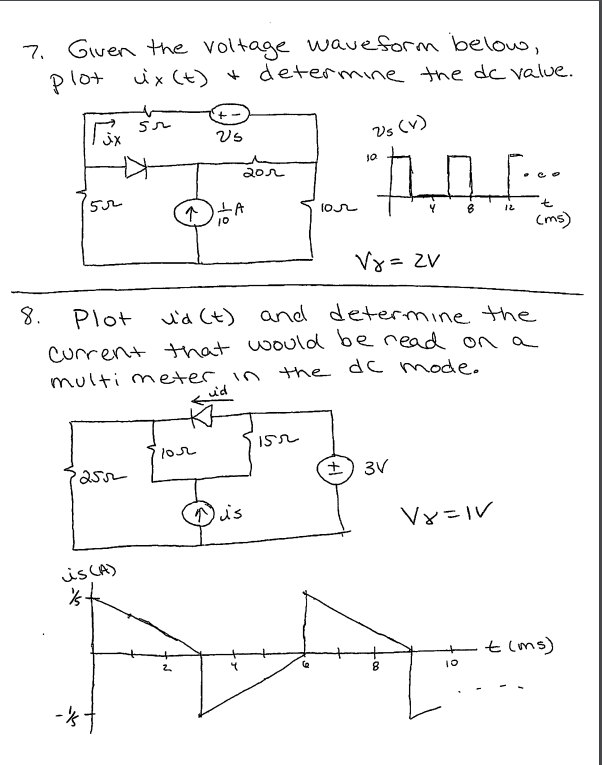 7. Given the voltage waveform below,
plot ix(t) & determine the dc value.
ix
5Ω
+ -
Vs
20Ω
5Ω
1/10 A
10Ω
Vs (V)
10
4 8 12 t
(ms)
Vγ = 2V
8. Plot id(t) and determine the
current that would be read on a
multimeter in the dc mode.
id
25Ω
10Ω
15Ω
+ -
3V
is
Vγ = 1V
is (A)
1/5
-1/5
2 4 6 8 10 t (ms)